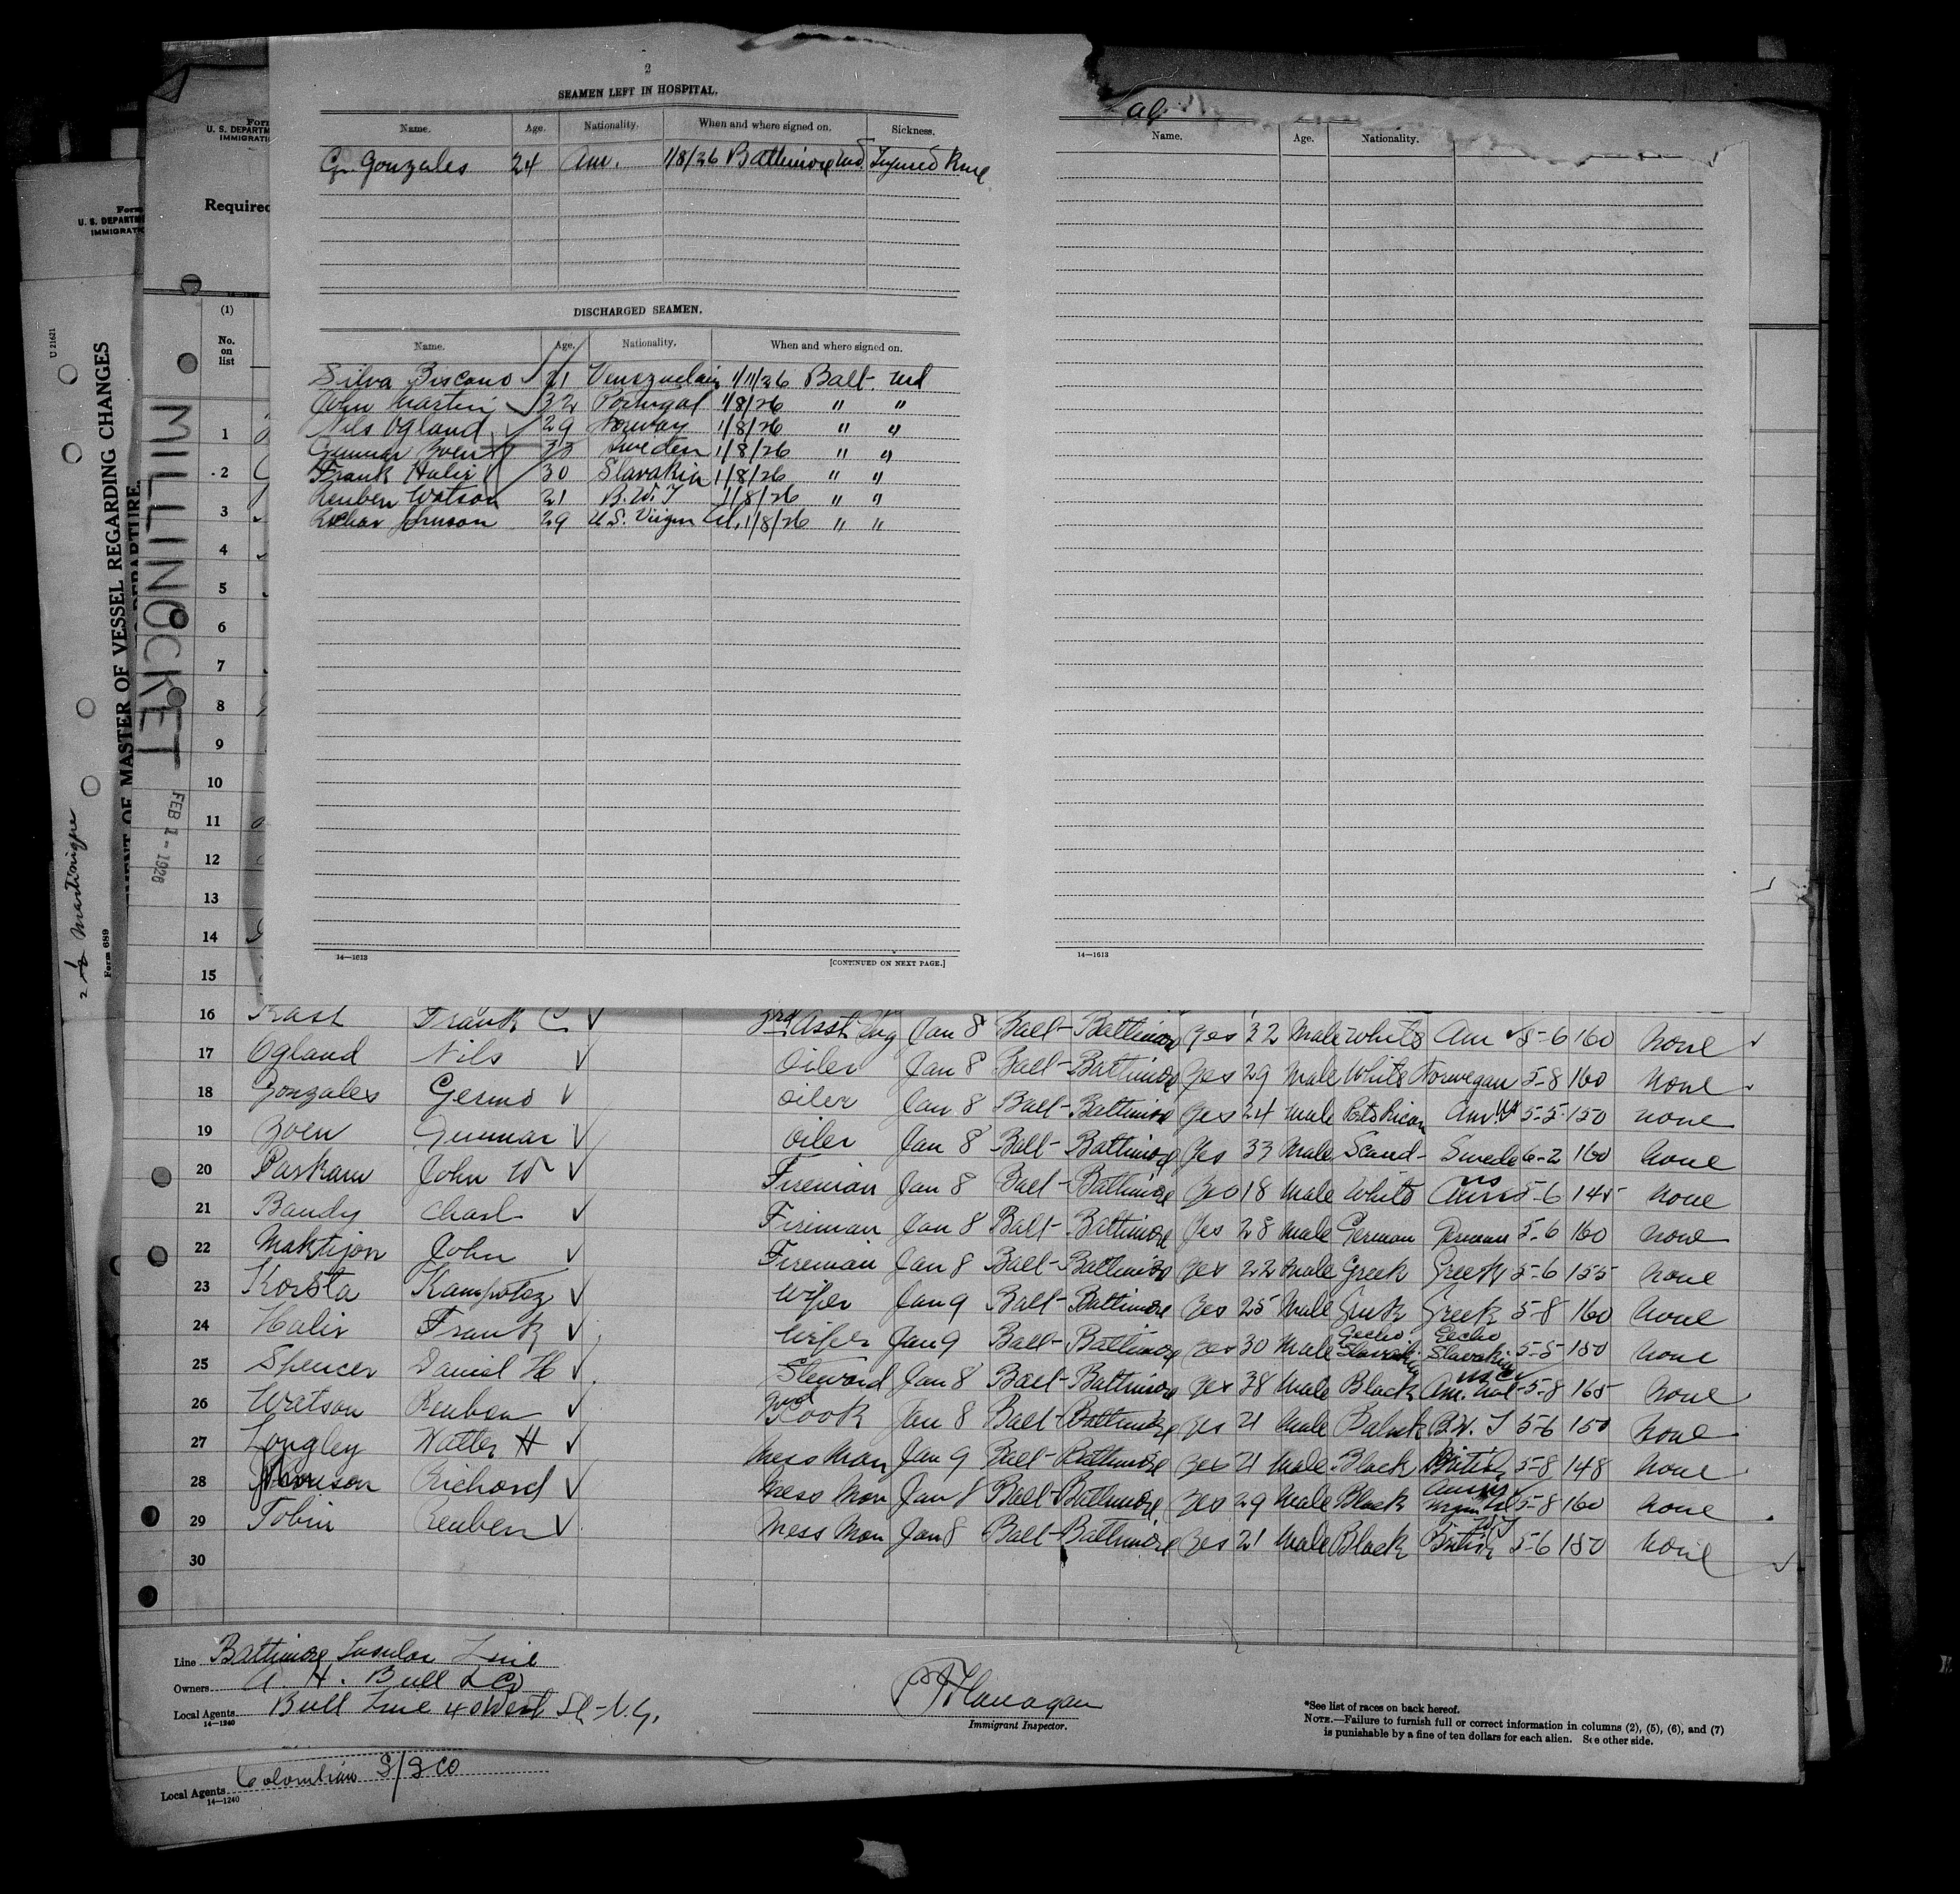 2
SEAMEN LEFT IN HOSPITAL.
Name. Age. Nationality. When and where signed on. Sickness.
G. Gonzales 24 Am. 1/8/26 Baltimore Md Injured Knee
DISCHARGED SEAMEN.
Name. Age. Nationality. When and where signed on.
Silva Biscano 21 Venezuelain 1/11/26 Balt. Md
John Martin 32 Portugal 1/8/26 " "
Nils Ogland 29 Norway 1/8/26 " "
Gunnar Zoen 33 Sweden 1/8/26 " "
Frank Halir 30 Slavakia 1/8/26 " "
Reuben Watson 21 B.W.I 1/8/26 " "
Johnson 29 U.S. Virgin Isl. 1/8/26 " "
14—1613
[CONTINUED ON NEXT PAGE.]
Name. Age. Nationality.
14—1613
Form
U. S. DEPARTM
IMMIGRATI
Required
Form
U. S. DEPARTME
IMMIGRATIO
U 21621
MENT OF MASTER OF VESSEL REGARDING CHANGES
DEPARTURE.
MILLINOCKET
FEB 1 - 1926
Martinique
Form 689
(1)
No.
on
list
1
2
3
4
5
6
7
8
9
10
11
12
13
14
15
16 Kast Frank C 3rd Asst Eng Jan 8 Balt- Baltimore Yes 32 Male White Am 5-6 160 none
17 Ogland Nils Oiler Jan 8 Balt- Baltimore Yes 29 Male White Norwegan 5-8 160 none
18 Gonzales Germo Oiler Jan 8 Balt- Baltimore Yes 24 Male Porto Rican Am US 5-5 150 none
19 Zoen Gunnar Oiler Jan 8 Balt- Baltimore Yes 33 Male Scand- Swede 6-2 160 none
20 Parkam John W Fireman Jan 8 Balt- Baltimore Yes 18 Male White US 5-6 145 none
21 Bandy Chasl Fireman Jan 8 Balt- Baltimore Yes 28 Male German German 5-6 160 none
22 Maktijon John Fireman Jan 8 Balt- Baltimore Yes 22 Male Greek Greek 5-6 155 none
23 Korsta Kampotez Wiper Jan 9 Balt- Baltimore Yes 25 Male Greek Greek 5-8 160 none
24 Halir Frank Wiper Jan 9 Balt- Baltimore Yes 30 Male Czecho Slavakia Czecho Slavakia 5-5 150 none
25 Spencer Daniel H Steward Jan 8 Balt- Baltimore Yes 38 Male Black Am. Nat- 5-8 165 none
26 Watson Reuben Cook Jan 8 Balt- Baltimore Yes 21 Male Balack B.W. I 5-6 150 none
27 Longley Walter H Mess Man Jan 9 Balt- Baltimore Yes 21 Male Black British 5-8 148 none
28 Johnson Richard Mess Man Jan 8 Balt- Baltimore Yes 29 Male Black Virgin Isl 5-8 160 none
29 Tobin Reuben Mess Man Jan 8 Balt- Baltimore Yes 21 Male Black British WI 5-6 150 none
30
Line Baltimore Insular Line
Owners A. H. Bull & Co
Local Agents Bull Line 40 West St- N.Y.
14—1240
Flanagan
Immigrant Inspector.
*See list of races on back hereof.
NOTE.—Failure to furnish full or correct information in columns (2), (5), (6), and (7)
is punishable by a fine of ten dollars for each alien. See other side.
Local Agents Colombian S/S Co
14—1240